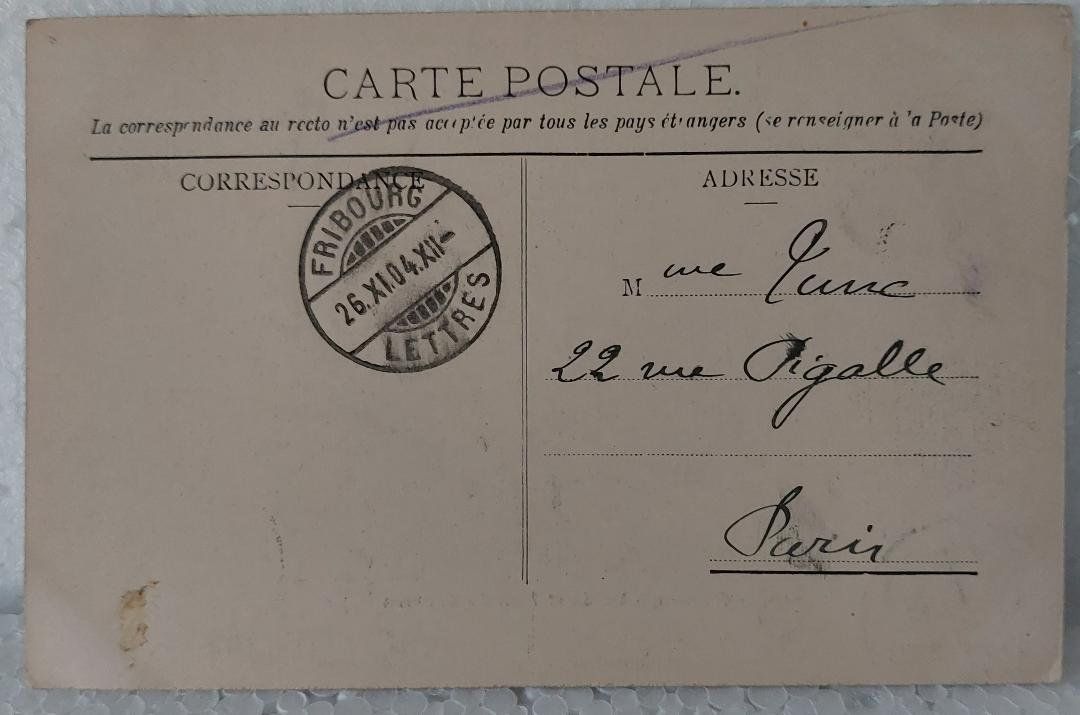 CARTE POSTALE.
La correspondance au recto n'est pas acceptée par tous les pays étrangers (se renseigner à la Poste)
CORRESPONDANCE
ADRESSE
FRIBOURG
26.XI.04.XII
LETTRES
Mme
22 rue Pigalle
Paris